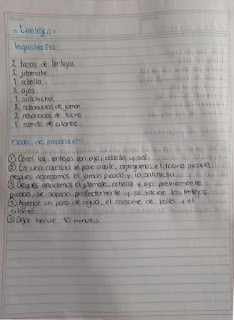 - Lentejas -
Ingredientes
2 tazas de lentejas
2 jitomate
1 cebolla
2 ajos
1 salchicha
2 rebanadas de jamón
2 rebanadas de tocino
1 ramito de cilantro
Modo de preparación
① Cocer las lentejas con ajo, cebolla y sal.
② En una cacerola se pone aceite, agregamos el tocino picado,
después agregamos el jamón picado y la salchicha.
③ Después añadimos el jitomate, cebolla y ajo previamente
picado, se sazona perfectamente y se vacían las lentejas
④ Agregar un poco de agua, el consome de pollo y el
cilantro
⑤ Dejar hervir 10 minutos.